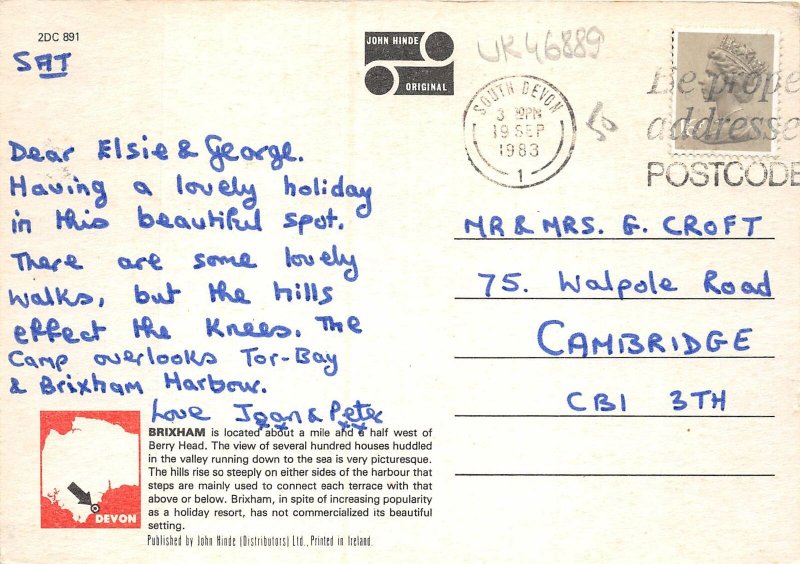 2DC 891
SAT
JOHN HINDE
ORIGINAL
UK46889
SOUTH DEVON
19 SEP
1983
1
50
Be prope
addresse
POSTCODE
Dear Elsie & George.
Having a lovely holiday
in this beautiful spot.
There are some lovely
walks, but the hills
effect the knees. The
Camp overlooks Tor-Bay
& Brixham Harbour.
Love Joan & Peter
MR & MRS. G. CROFT
75. Walpole Road
CAMBRIDGE
CB1 3TH
BRIXHAM is located about a mile and a half west of
Berry Head. The view of several hundred houses huddled
in the valley running down to the sea is very picturesque.
The hills rise so steeply on either sides of the harbour that
steps are mainly used to connect each terrace with that
above or below. Brixham, in spite of increasing popularity
as a holiday resort, has not commercialized its beautiful
setting.
Published by John Hinde (Distributors) Ltd., Printed in Ireland.
DEVON